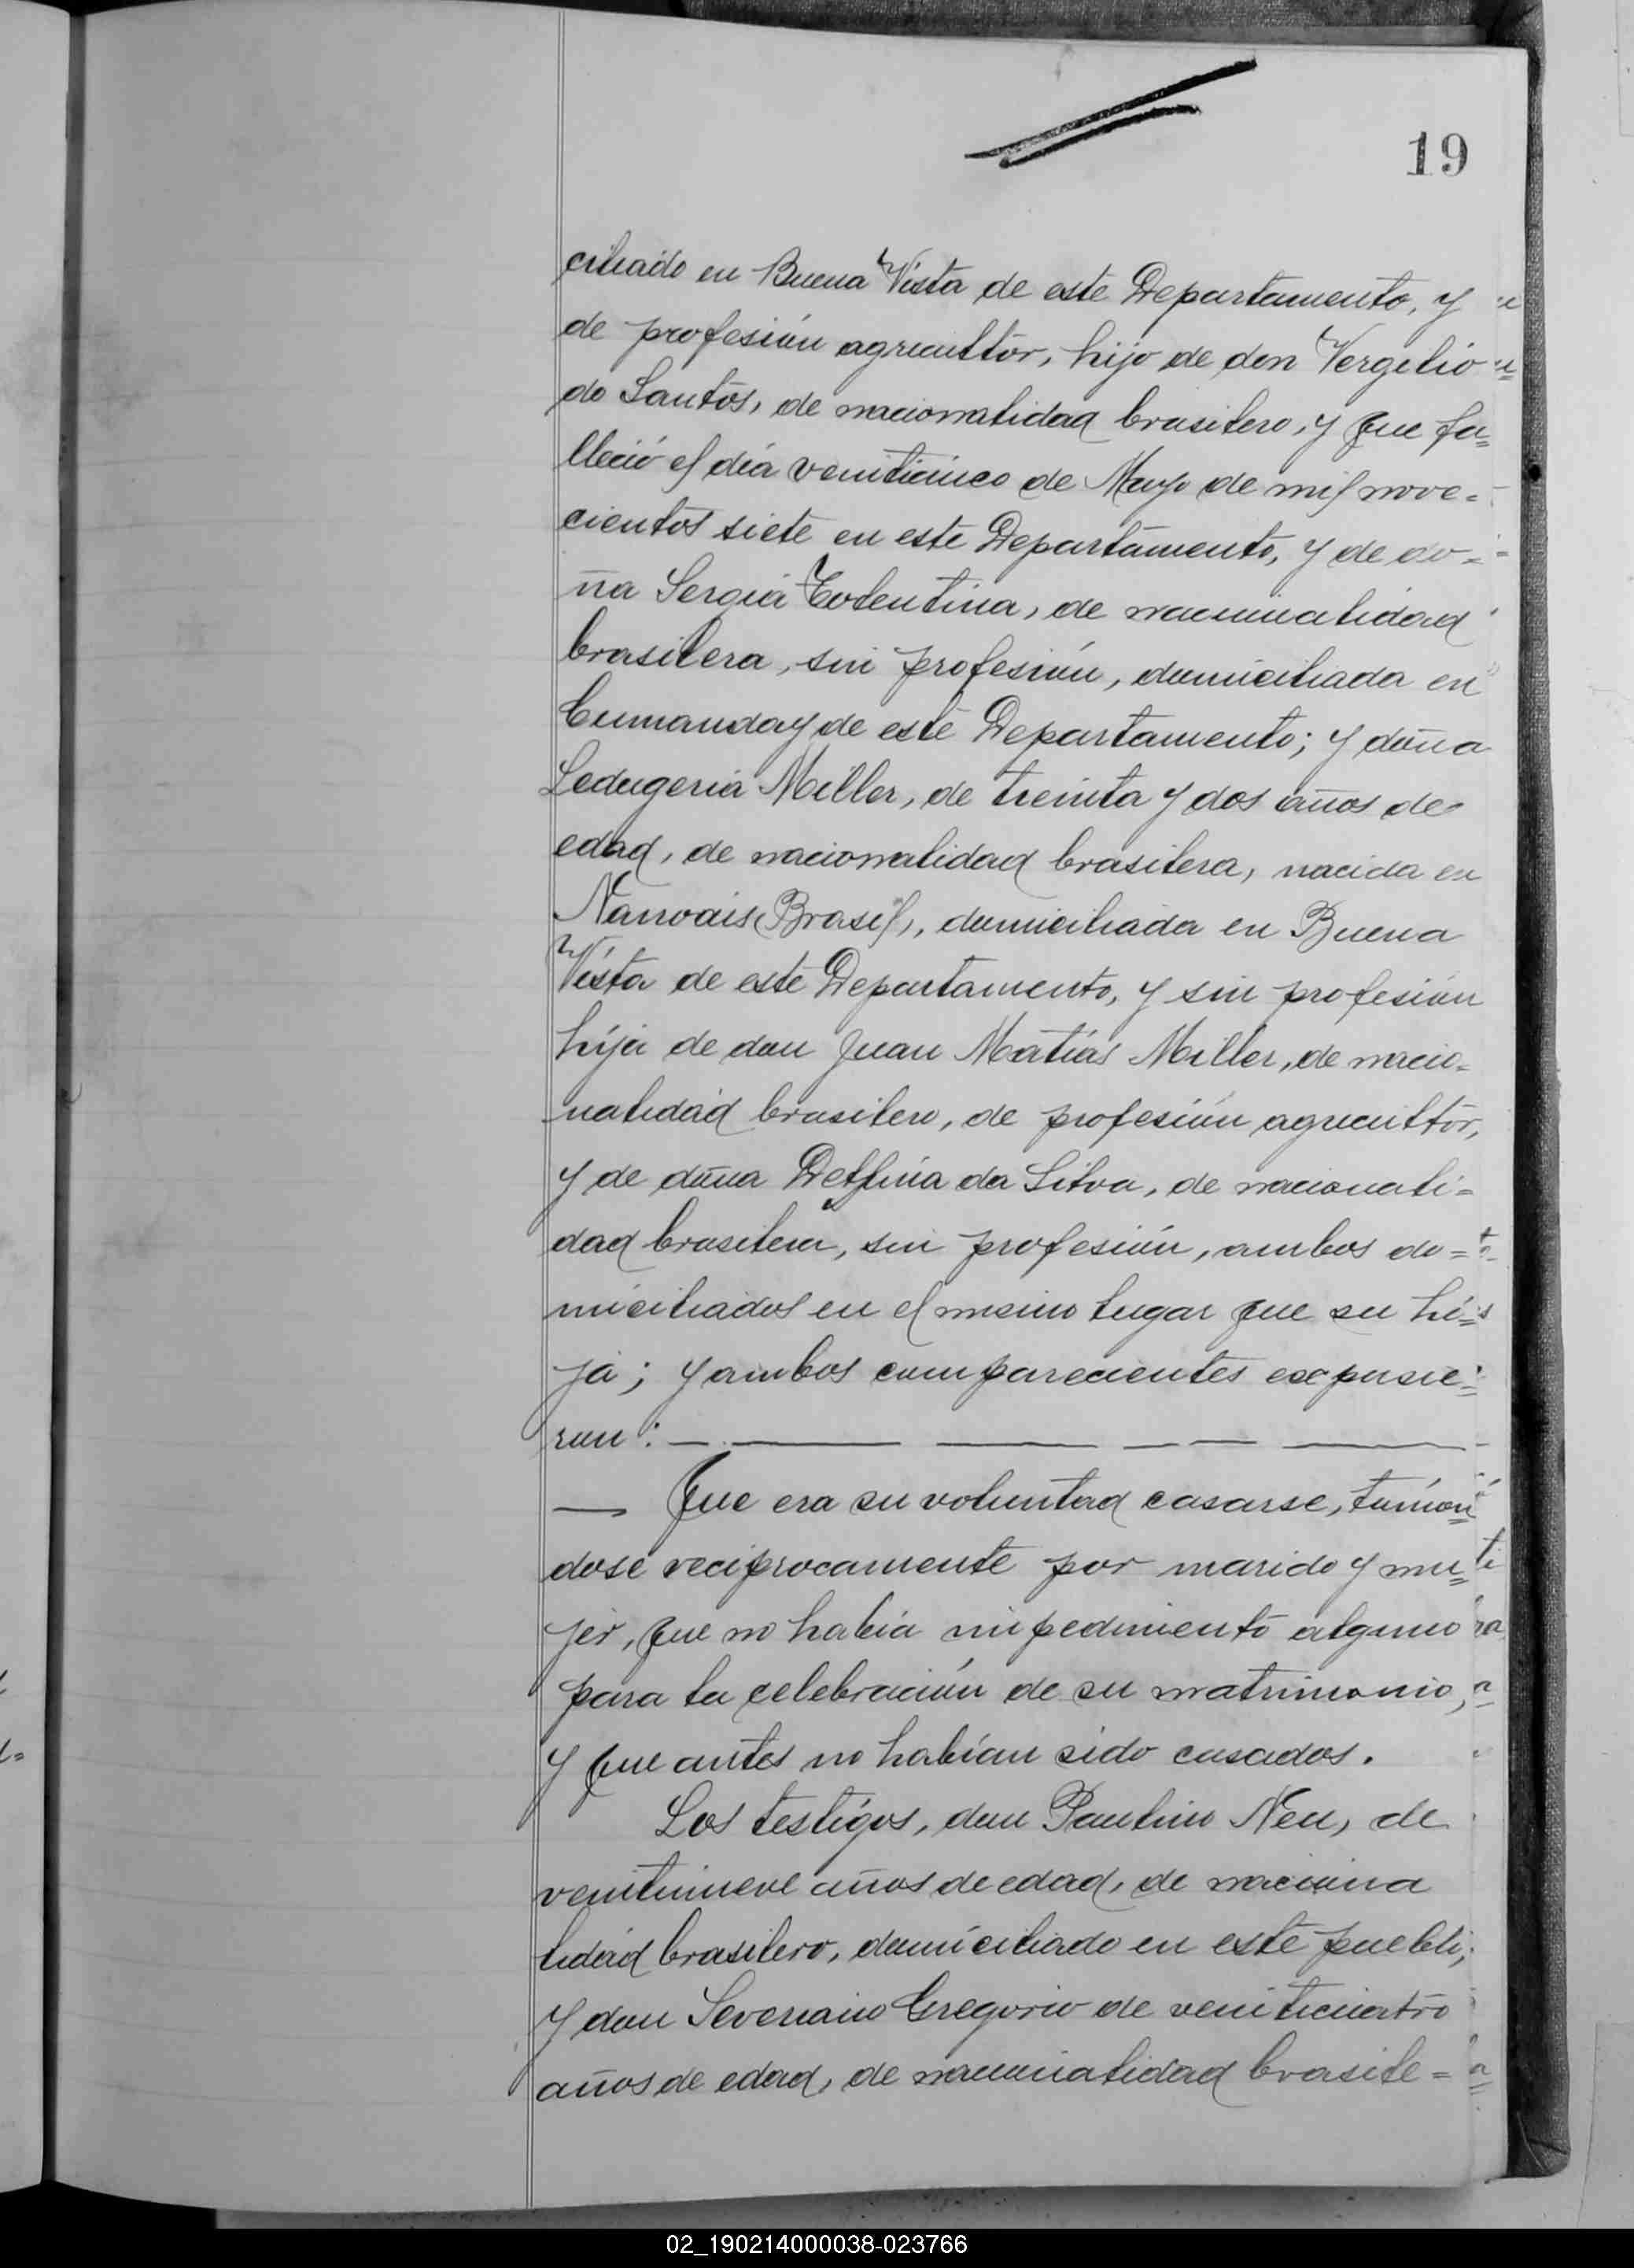 19
ciliado en Buena Vista de este Departamento, y
de profesión agricultor, hijo de don Vergilio
do Santos, de nacionalidad brasilero, y que fa=
lleció el día veinticinco de Mayo de mil nove=
cientos siete en este Departamento, y de do=
ña Sergia Tolentina, de nacionalidad
brasilera, sin profesión, domiciliada en
Cumanday de este Departamento; y doña
Ledugeria Miller, de treinta y dos años de
edad, de nacionalidad brasilera, nacida en
(Brasil), domiciliada en Buena
Vista de este Departamento, y sin profesión
hija de don Juan Matías Miller, de nacio=
nalidad brasilero, de profesión agricultor,
y de doña Delfina da Silva, de nacionali=
dad brasilera, sin profesión, ambos do=
miciliados en el mismo lugar que su hi=
ja; y ambos comparecientes expusie=
ron:
— Que era su voluntad casarse, tomán=
dose reciprocamente por marido y mu=
jer, que no había impedimento alguno
para la celebración de su matrimonio,
y que antes no habían sido casados.
Los testigos, don Paulino Neu, de
veintinueve años de edad, de naciona
lidad brasilero, domiciliado en este pueblo;
y don Severiano Gregorio de veinticuatro
años de edad, de nacionalidad brasile=
02_190214000038-023766